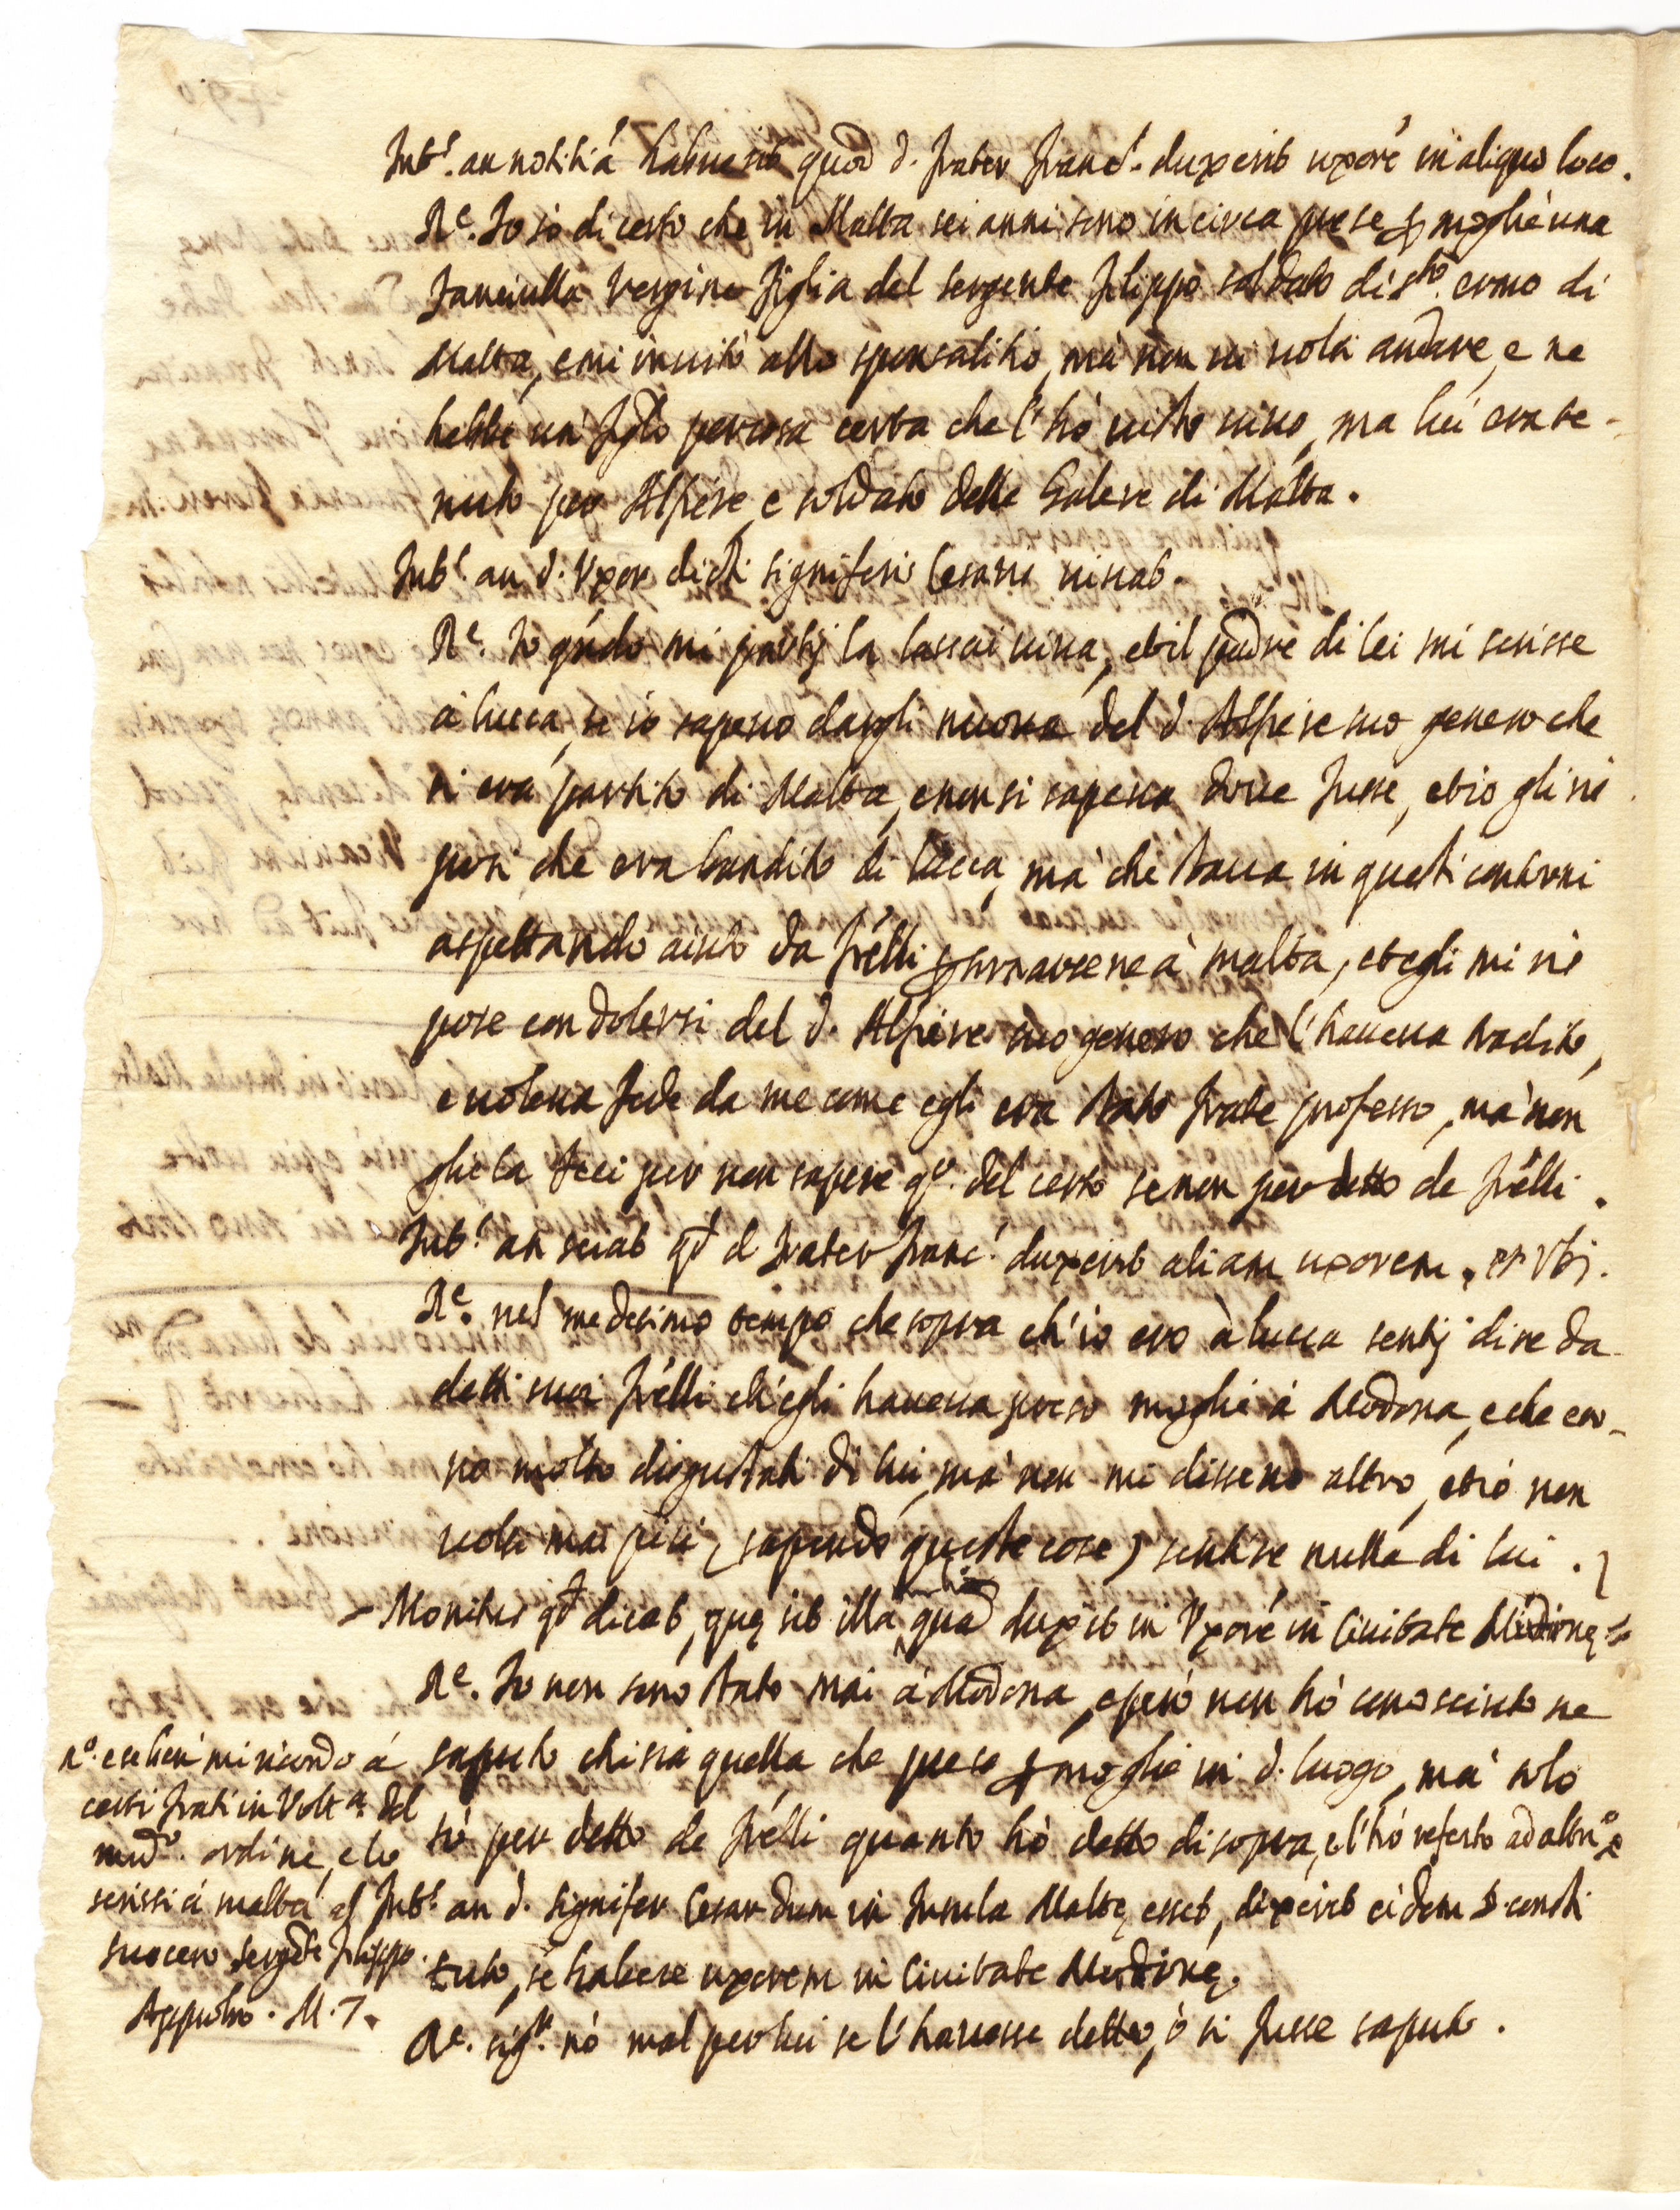 Intˢ. an notitiā habuerit quod d. frater Francˢ. duxerit uxorē in aliquo loco.
Rᵉ. Io sò di certo che in Malta sei anni sono in circa prese p moglie una
fanciulla vergine figlia del sergente Filippo soldato di sᵗᵒ ermo di
Malta, e mi invitò allo sponsalitio, mà non vi volsi andare, e ne
hebbe un' figlo per cosa certa che l'hò visto vivo, ma lui era te-
nuto per Alfiere, e soldato delle Galere di Malta.
Intˢ. an d. Uxor dicti signiferi Cesaris vivat.
Rᵉ. Io qn̄do mi partij la lassai viva, et il padre di lei mi scrisse
à lucca, se io sapevo dargli nuova del d. Alfiere suo genero che
si era partito di Malta, e non si sapeva dove fusse, et io gli ris
posi che era bandito di lucca, mà che stava in questi contorni
aspettando aiuto da frēlli p tornarsene à malta, et egli mi ris
pose con dolersi del d. Alfiere suo genero che l'haveva tradito,
e voleva fede da me come egli era stato frate professo, mà non
glie la feci per non sapere qᵒ. del certo se non per detto de frēlli.
Intˢ. an sciat qd d frater Francˢ. duxerit aliam uxorem. et Ubj.
Rᵉ. nel medesimo tempo che sopra ch'io ero à lucca sentij dire da
detti suoi frēlli ch'egli haveva preso moglie à Modona, e che era-
no molto disgustati di lui, mà non mi dissero altro, et io non
volsi mai più (sapendo queste cose) sentire nulla di lui.
- Monitus qd dicat, quę sit illa quā duxit in Uxorē in Civitate Mutinę
Rᵉ. Io non sono stato mai à Modona, e però non hò conosciuto ne
saputo chi sia quella, che prese p moglie in d. luogo, mà solo
sò per detto de frēlli quanto hò detto di sopra, e l'hò referto ad altri
nᵒ. e se ben' mi ricordo á
certi frati in Voltᵃ. del
medᵒ. ordine, e lo
scrissi á malta al
suocero sergᵗᵉ filippo.
Agapito. M. 7.
Intˢ. an d. signifer Cesar dum in Insula Maltę esset, dixerit eidem consti
tuto, se habere uxorem in Civitate Mutinę.
Rᵉ. sigʳ. nò mal per lui se l'havesse detto, ò si fusse saputo.